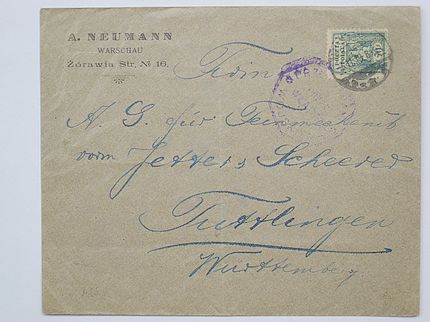 A. NEUMANN
WARSCHAU
Żórawia Str. № 16.
Firma
A. G. für Feinmechanik
vorm Jetter & Scheerer
Tuttlingen
Württemberg